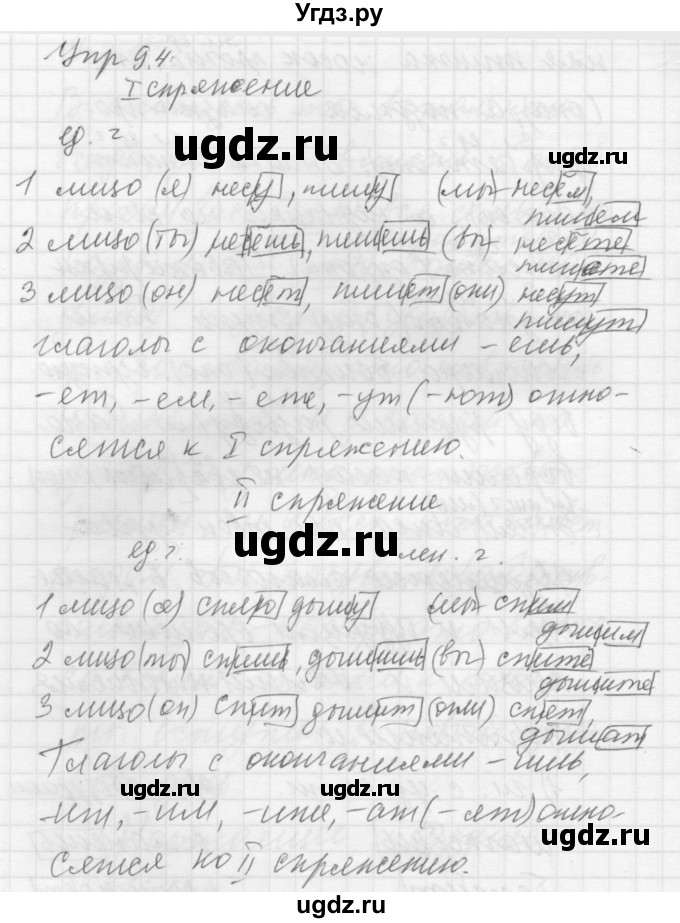 Угдз.ру
Упр 94.
I спряжение
ед. ч.
ugdz.ru
ugdz.ru
1 лицо (я) несу, пишу (мы) несём,
пишем
2 лицо (ты) несёшь, пишешь (вы) несёте
пишете
3 лицо (он) несёт, пишет (они) несут
пишут
глаголы с окончаниями -ешь,
-ет, -ем, -ете, -ут (-ют) отно-
сятся к I спряжению.
II спряжение
ugdz.ru
ugdz.ru
ед ч. мн. ч.
1 лицо (я) сплю дышу (мы) спим
дышим
2 лицо (ты) спишь, дышишь (вы) спите
дышите
3 лицо (он) спит дышит (они) спят,
дышат
Глаголы с окончаниями -ишь,
ugdz.ru
ugdz.ru
-ит, -им, -ите, -ат (-ят) отно-
ugdz.ru
сятся ко II спряжению.
ugdz.ru
ugdz.ru